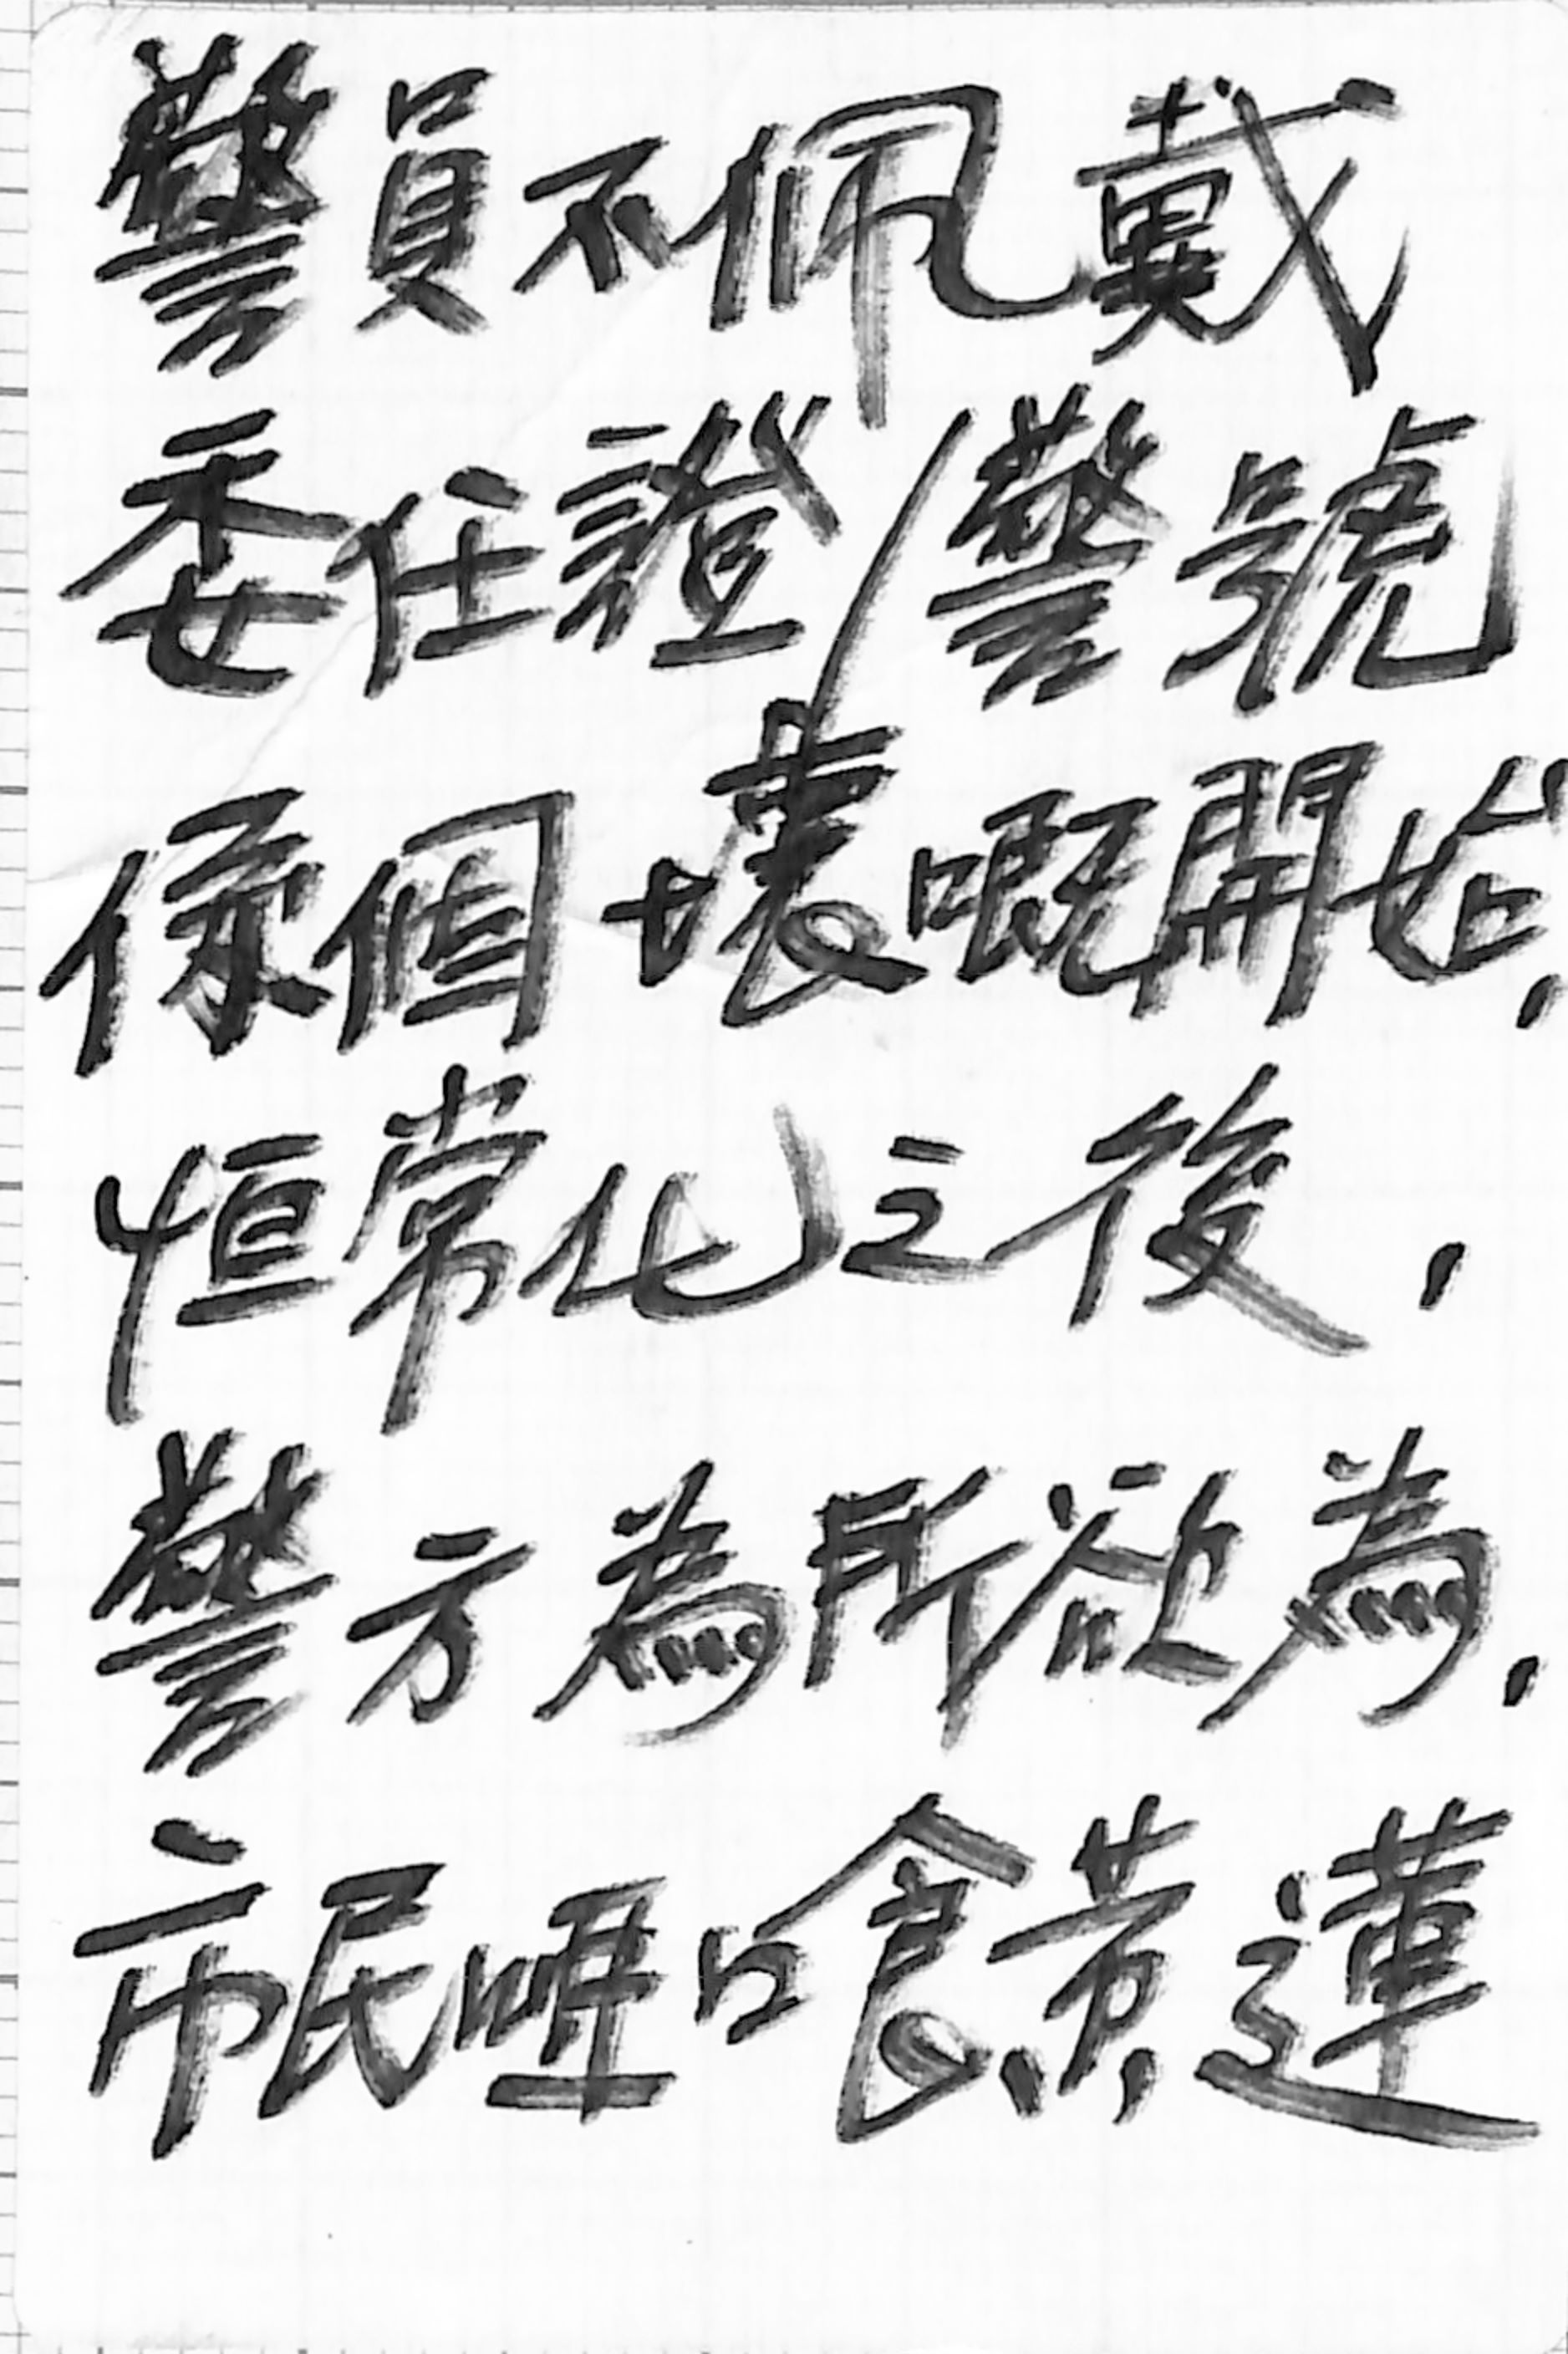 警員不佩戴
委任證/警號
係個壞嘅開始,
恒常化之後,
警方為所欲為,
市民啞口食黃蓮